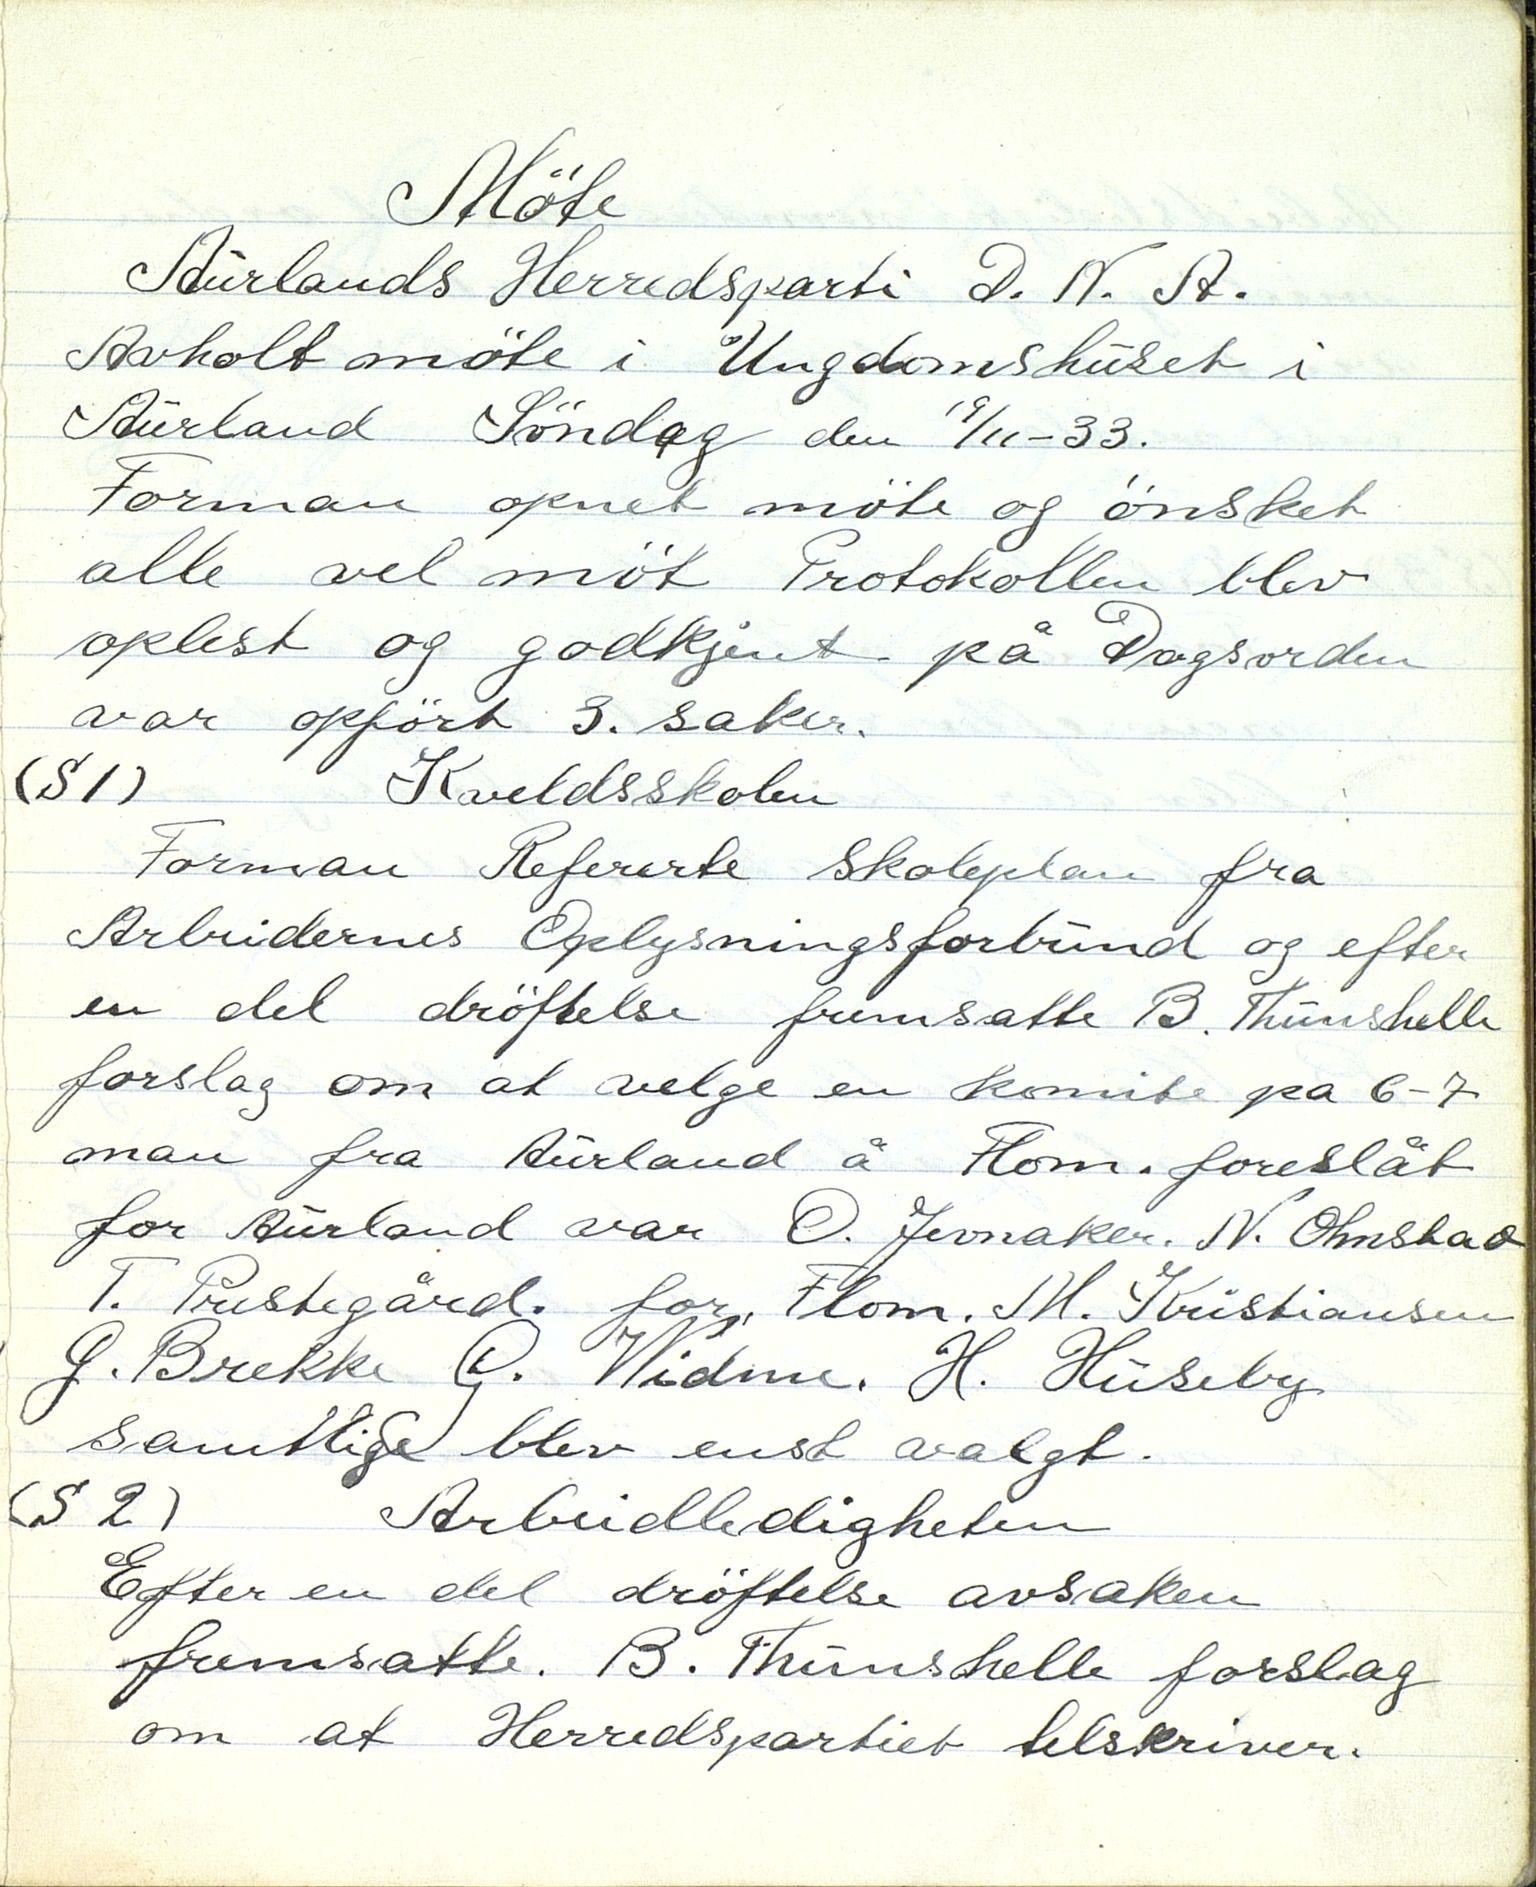 Möte
Aurlands Herredsparti D. N. A.
Avholt möte i Ungdomshuset i
Aurland Söndag den 19/11-33.
Forman opnet möte og önsket
alle vel möt Protokollen blev
oplest og godkjent på Dagsorden
var opfört 3. saker.
(§ 1) Kveldsskolen
Forman Refererte skoleplan fra
Arbeidernes Oplysningsforbund og efter
en del dröftelse fremsatte B. Thunshelle
forslag om at velge en komite pa 6-7
man fra Aurland å Flom. foreslåt
for Aurland var O. Jevnaker. N. Ohnstad
T. Prestegård. for, Flom. M. Kristiansen
G. Brekke G. Widme. H. Huseby
samtlige blev enst valgt.
(§ 2) Arbeidledigheten
Efter en del dröftelse avsaken
fremsatte. B. Thunshelle forslag
om at Herredspartiet tilskriver.